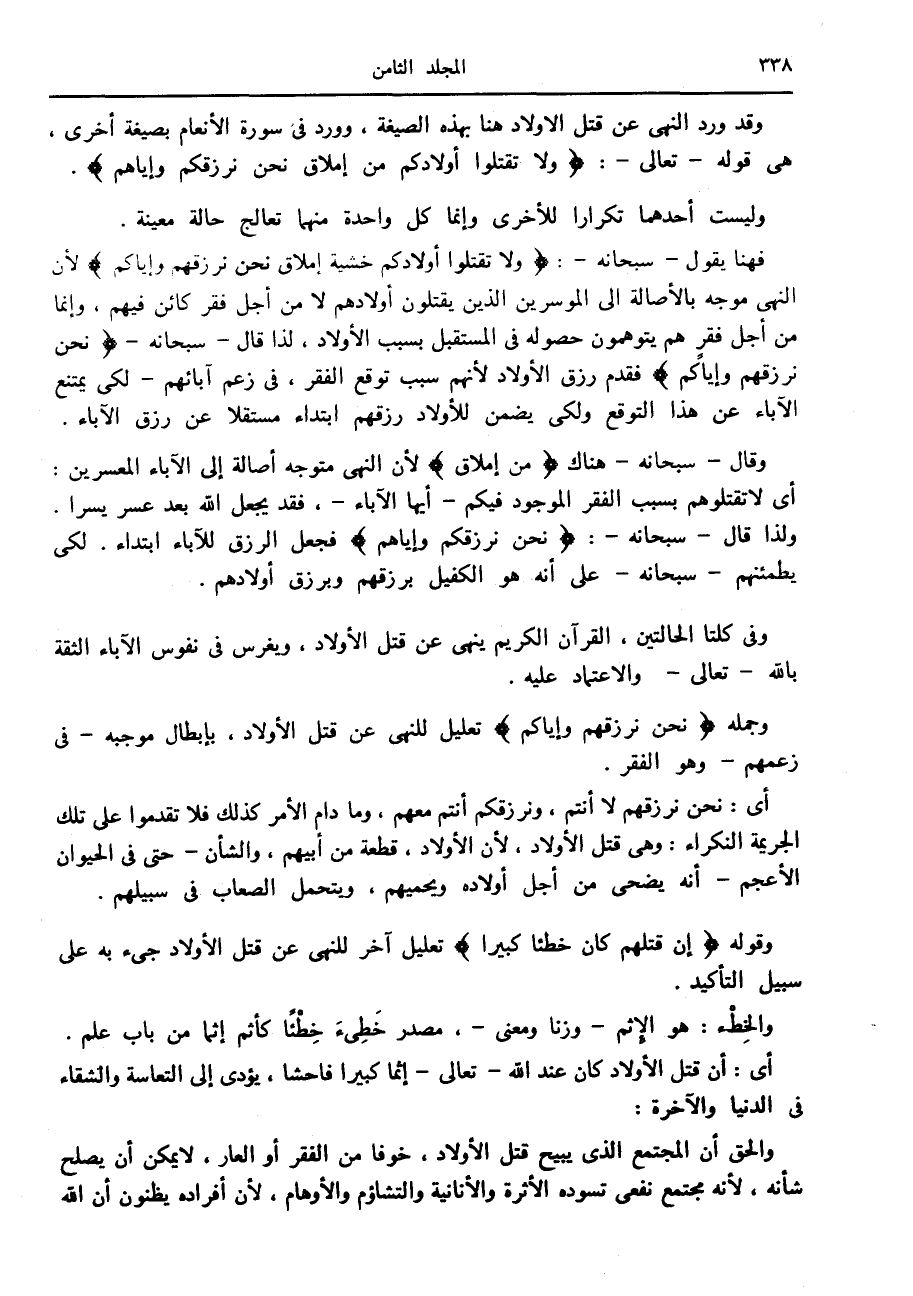 ٣٣٨
المجلد الثامن
وقد ورد النهى عن قتل الاولاد هنا بهذه الصيغة ، وورد فى سورة الأنعام بصيغة أخرى ،
هى قوله - تعالى - : ﴿ ولا تقتلوا أولادكم من إملاق نحن نرزقكم وإياهم ﴾ .
وليست أحدهما تكرارا للأخرى وإنما كل واحدة منهما تعالج حالة معينة .
فهنا يقول - سبحانه - : ﴿ ولا تقتلوا أولادكم خشية إملاق نحن نرزقهم وإياكم ﴾ لأن
النهى موجه بالأصالة الى الموسرين الذين يقتلون أولادهم لا من أجل فقر كائن فيهم ، وإنما
من أجل فقر هم يتوهمون حصوله فى المستقبل بسبب الأولاد ، لذا قال - سبحانه - ﴿ نحن
نرزقهم وإياكم ﴾ فقدم رزق الأولاد لأنهم سبب توقع الفقر ، فى زعم آبائهم - لكى يمتنع
الآباء عن هذا التوقع ولكى يضمن للأولاد رزقهم ابتداء مستقلا عن رزق الآباء .
وقال - سبحانه - هناك ﴿ من إملاق ﴾ لأن النهى متوجه أصالة إلى الآباء المعسرين :
أى لاتقتلوهم بسبب الفقر الموجود فيكم - أيها الآباء - ، فقد يجعل الله بعد عسر يسرا .
ولذا قال - سبحانه - : ﴿ نحن نرزقكم وإياهم ﴾ فجعل الرزق للآباء ابتداء . لكى
يطمئنهم - سبحانه - على أنه هو الكفيل برزقهم وبرزق أولادهم .
وفى كلتا الحالتين ، القرآن الكريم ينهى عن قتل الأولاد ، ويغرس فى نفوس الآباء الثقة
بالله - تعالى - والاعتماد عليه .
وجمله ﴿ نحن نرزقهم وإياكم ﴾ تعليل للنهى عن قتل الأولاد ، بإبطال موجبه - فى
زعمهم - وهو الفقر .
أى : نحن نرزقهم لا أنتم ، ونرزقكم أنتم معهم ، وما دام الأمر كذلك فلا تقدموا على تلك
الجريمة النكراء : وهى قتل الأولاد ، لأن الأولاد ، قطعة من أبيهم ، والشأن - حتى فى الحيوان
الأعجم - أنه يضحى من أجل أولاده ويحميهم ، ويتحمل الصعاب فى سبيلهم .
وقوله ﴿ إن قتلهم كان خطئا كبيرا ﴾ تعليل آخر للنهى عن قتل الأولاد جىء به على
سبيل التأكيد .
والخِطْء : هو الإِثم - وزنا ومعنى - ، مصدر خَطِىءَ خِطْئًا كأثم إثما من باب علم .
أى : أن قتل الأولاد كان عند الله - تعالى - إثما كبيرا فاحشا ، يؤدى إلى التعاسة والشقاء
فى الدنيا والآخرة :
والحق أن المجتمع الذى يبيح قتل الأولاد ، خوفا من الفقر أو العار ، لايمكن أن يصلح
شأنه ، لأنه مجتمع نفعى تسوده الأثرة والأنانية والتشاؤم والأوهام ، لأن أفراده يظنون أن الله